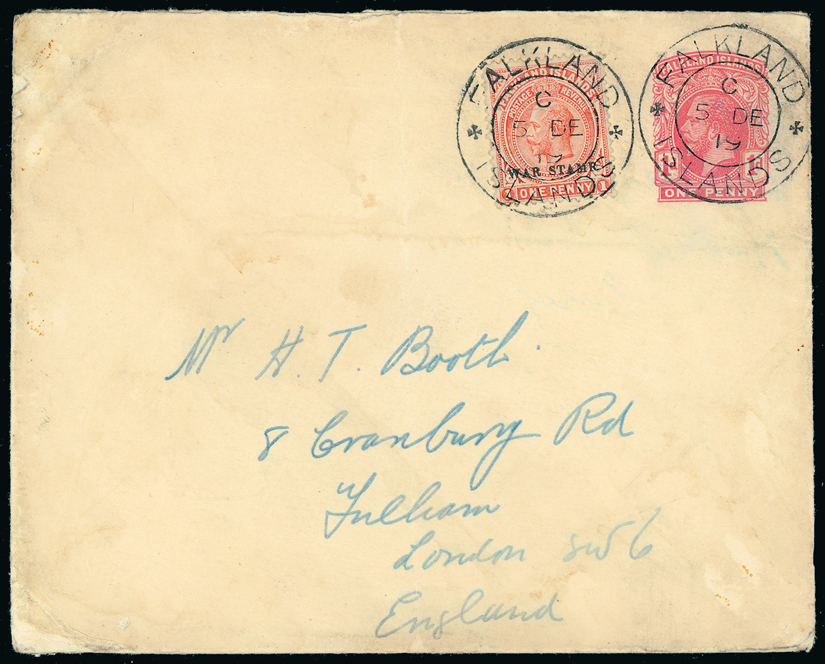 FALKLAND ISLANDS
C
5 DE
19
FALKLAND ISLANDS
POSTAGE REVENUE
WAR STAMP
1 ONE PENNY 1
FALKLAND ISLANDS
C
5 DE
19
FALKLAND ISLANDS
1d 1d
ONE PENNY
Mr H. T. Booth.
8 Cranbury Rd
Fulham
London SW6
England